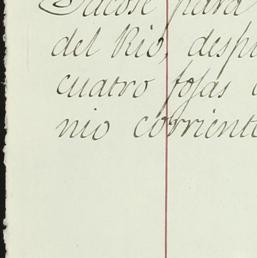 Sacóse para
del Rio, despu
cuatro fojas
nio corriente